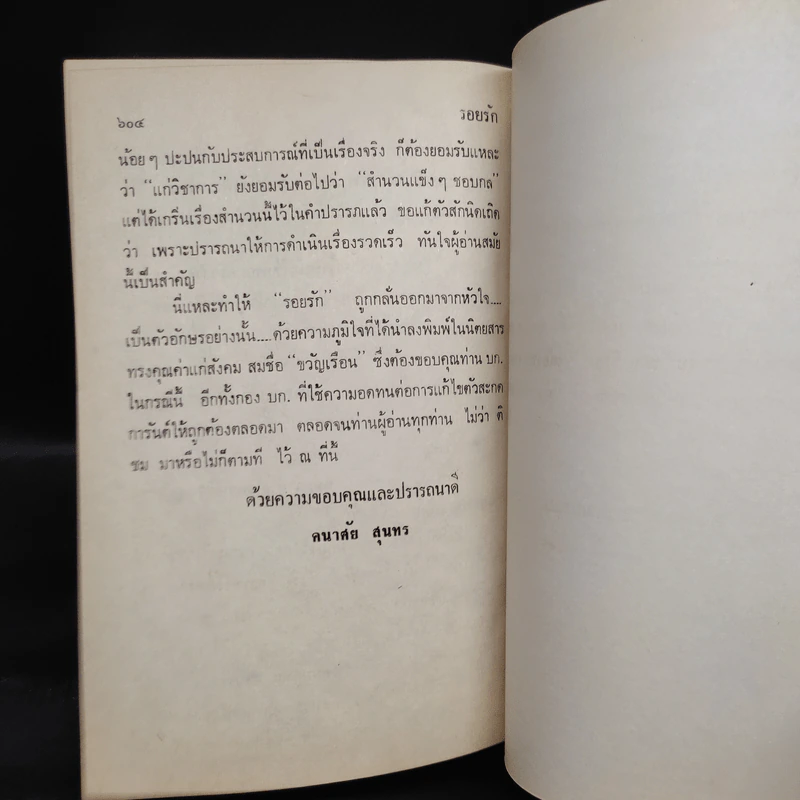 ๖๐๔ รอยรัก
น้อย ๆ ปะปนกับประสบการณ์ที่เป็นเรื่องจริง ก็ต้องยอมรับแหละ
ว่า “แก่วิชาการ” ยังยอมรับต่อไปว่า “สำนวนแข็ง ๆ ชอบกล”
แต่ได้เกริ่นเรื่องสำนวนนี้ไว้ในคำปรารภแล้ว ขอแก้ตัวสักนิดเถิด
ว่า เพราะปรารถนาให้การดำเนินเรื่องรวดเร็ว ทันใจผู้อ่านสมัย
นี้เป็นสำคัญ
นี่แหละทำให้ “รอยรัก” ถูกกลั่นออกมาจากหัวใจ....
เป็นตัวอักษรอย่างนั้น....ด้วยความภูมิใจที่ได้นำลงพิมพ์ในนิตยสาร
ทรงคุณค่าแก่สังคม สมชื่อ “ขวัญเรือน” ซึ่งต้องขอบคุณท่าน บก.
ในกรณีนี้ อีกทั้งกอง บก. ที่ใช้ความอดทนต่อการแก้ไขตัวสะกด
การันต์ให้ถูกต้องตลอดมา ตลอดจนท่านผู้อ่านทุกท่าน ไม่ว่า ติ
ชม มาหรือไม่ก็ตามที ไว้ ณ ที่นี้
ด้วยความขอบคุณและปรารถนาดี
คนาศัย สุนทร